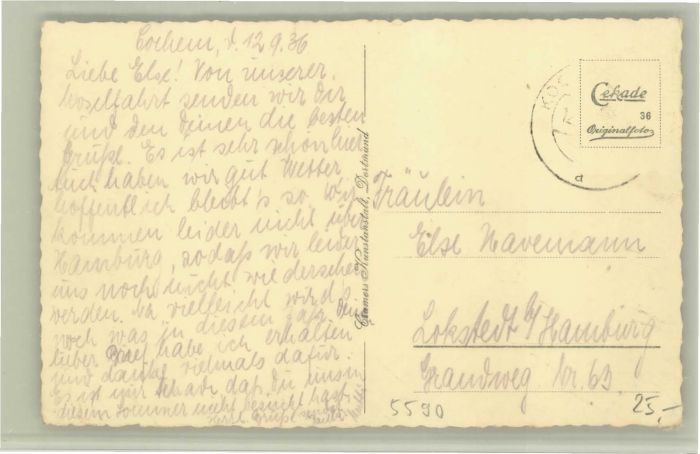 Cochem, d. 12.9.36
Liebe Else! Von unserer
Moselfahrt senden wir Dir
und den Deinen die besten
Grüße. Es ist sehr schön hier
auch haben wir gut Wetter
hoffentlich bleibt's so. Wir
kommen leider nicht über
Hamburg, sodaß wir leider
uns noch nicht wiedersehen
werden. Na vielleicht wird's
noch was in diesem Jahr. Dein
lieber Brief habe ich erhalten
und danke vielmals dafür.
Es ist nur schade daß Du uns in
diesem Sommer nicht besucht hast.
Herzl. Grüße
Cramers Kunstanstalt, Dortmund
Cekade
36
Originalfoto
Fräulein
Else Havemann
Lokstedt b/Hamburg
Grandweg Nr. 63
5590
25,-